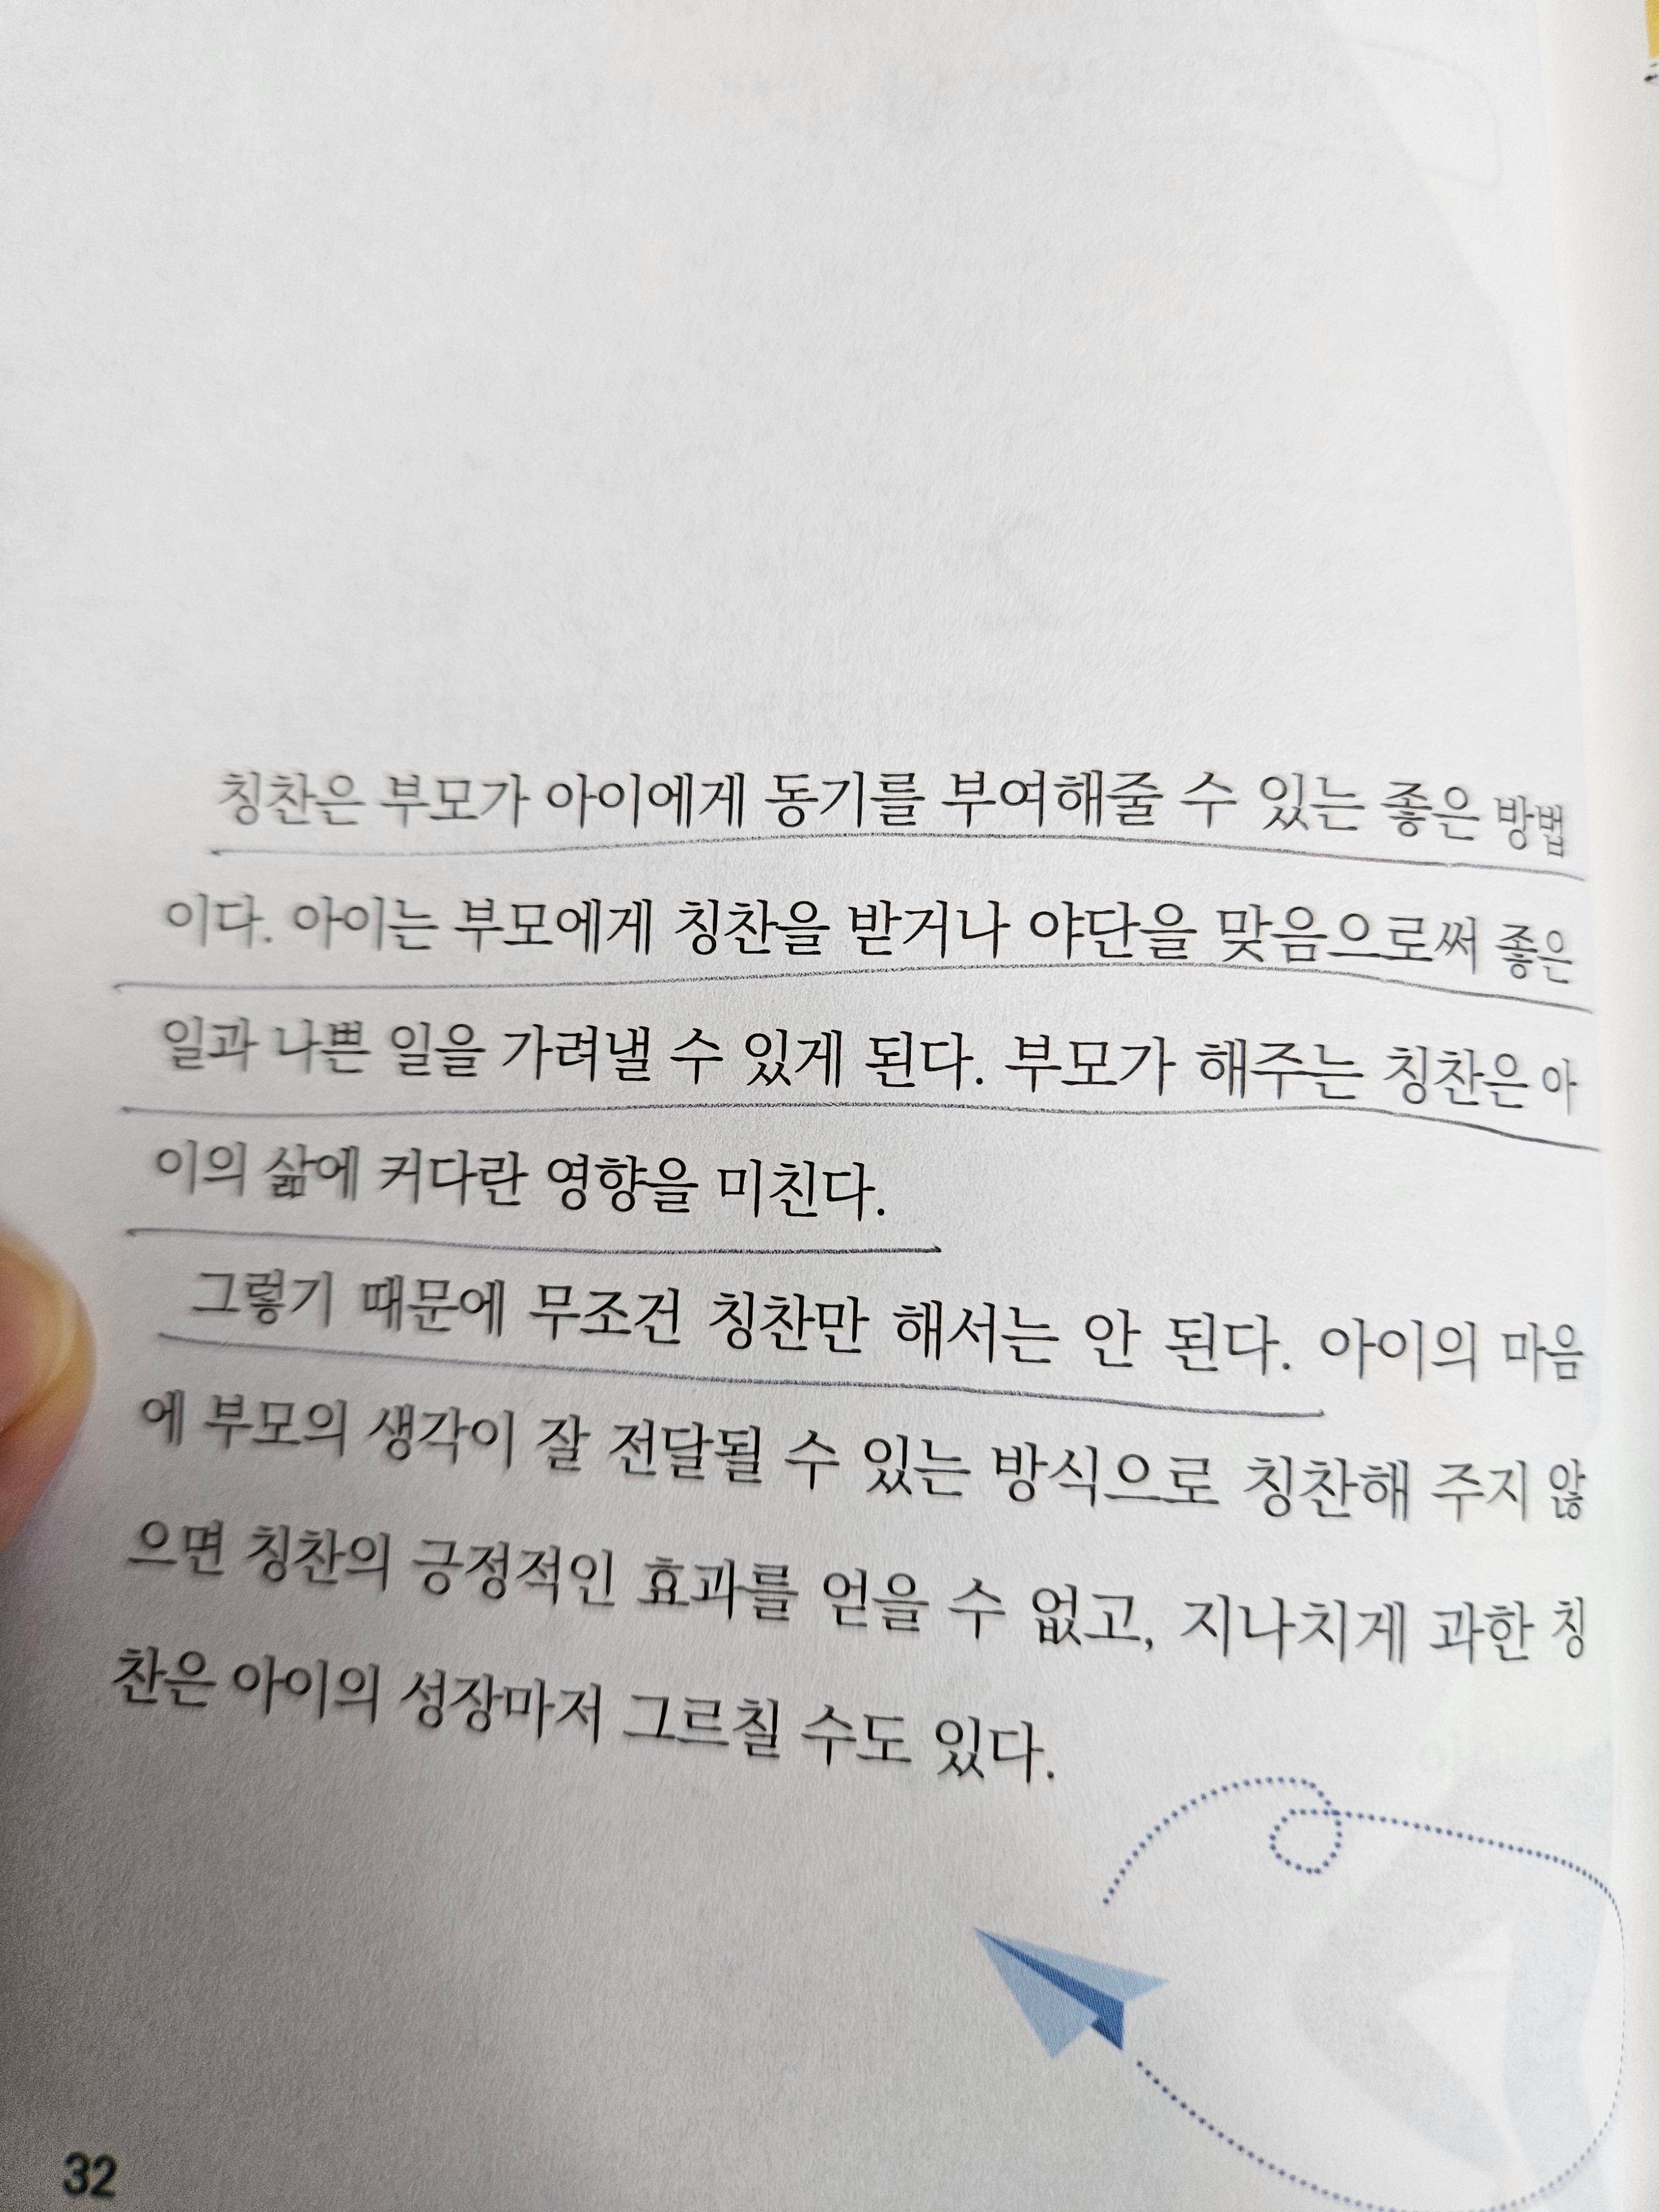 칭찬은 부모가 아이에게 동기를 부여해줄 수 있는 좋은 방법
이다. 아이는 부모에게 칭찬을 받거나 야단을 맞음으로써 좋은
일과 나쁜 일을 가려낼 수 있게 된다. 부모가 해주는 칭찬은 아
이의 삶에 커다란 영향을 미친다.
그렇기 때문에 무조건 칭찬만 해서는 안 된다. 아이의 마음
에 부모의 생각이 잘 전달될 수 있는 방식으로 칭찬해 주지 않
으면 칭찬의 긍정적인 효과를 얻을 수 없고, 지나치게 과한 칭
찬은 아이의 성장마저 그르칠 수도 있다.
32